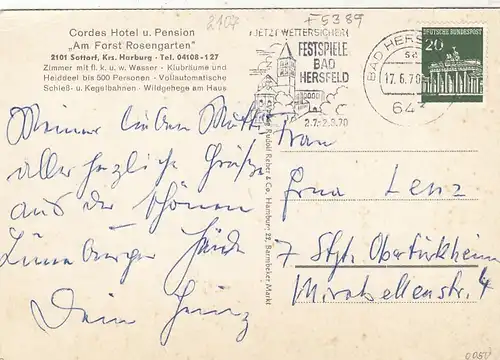 Cordes Hotel u. Pension
„Am Forst Rosengarten"
2101 Sottorf, Krs. Harburg · Tel. 04108 - 127
Zimmer mit fl. k. u. w. Wasser · Klubräume und
Heidediel bis 500 Personen · Vollautomatische
Schieß- u. Kegelbahnen · Wildgehege am Haus
Meiner lieben Mutti
aller herzliche Grüße
aus der schönen
Lüneburger Heide
Dein Heinz
2107
F5389
JETZT WETTERSICHER!
FESTSPIELE
BAD
HERSFELD
2.7.-2.8.70
BAD HERSFELD
sa
17.6.70
642
DEUTSCHE BUNDESPOST
20
Rudolf Reher & Co., Hamburg 22, Barmbeker Markt
Frau
Erna Lenz
7 Stgt. Obertürkheim
Mirabellenstr. 4